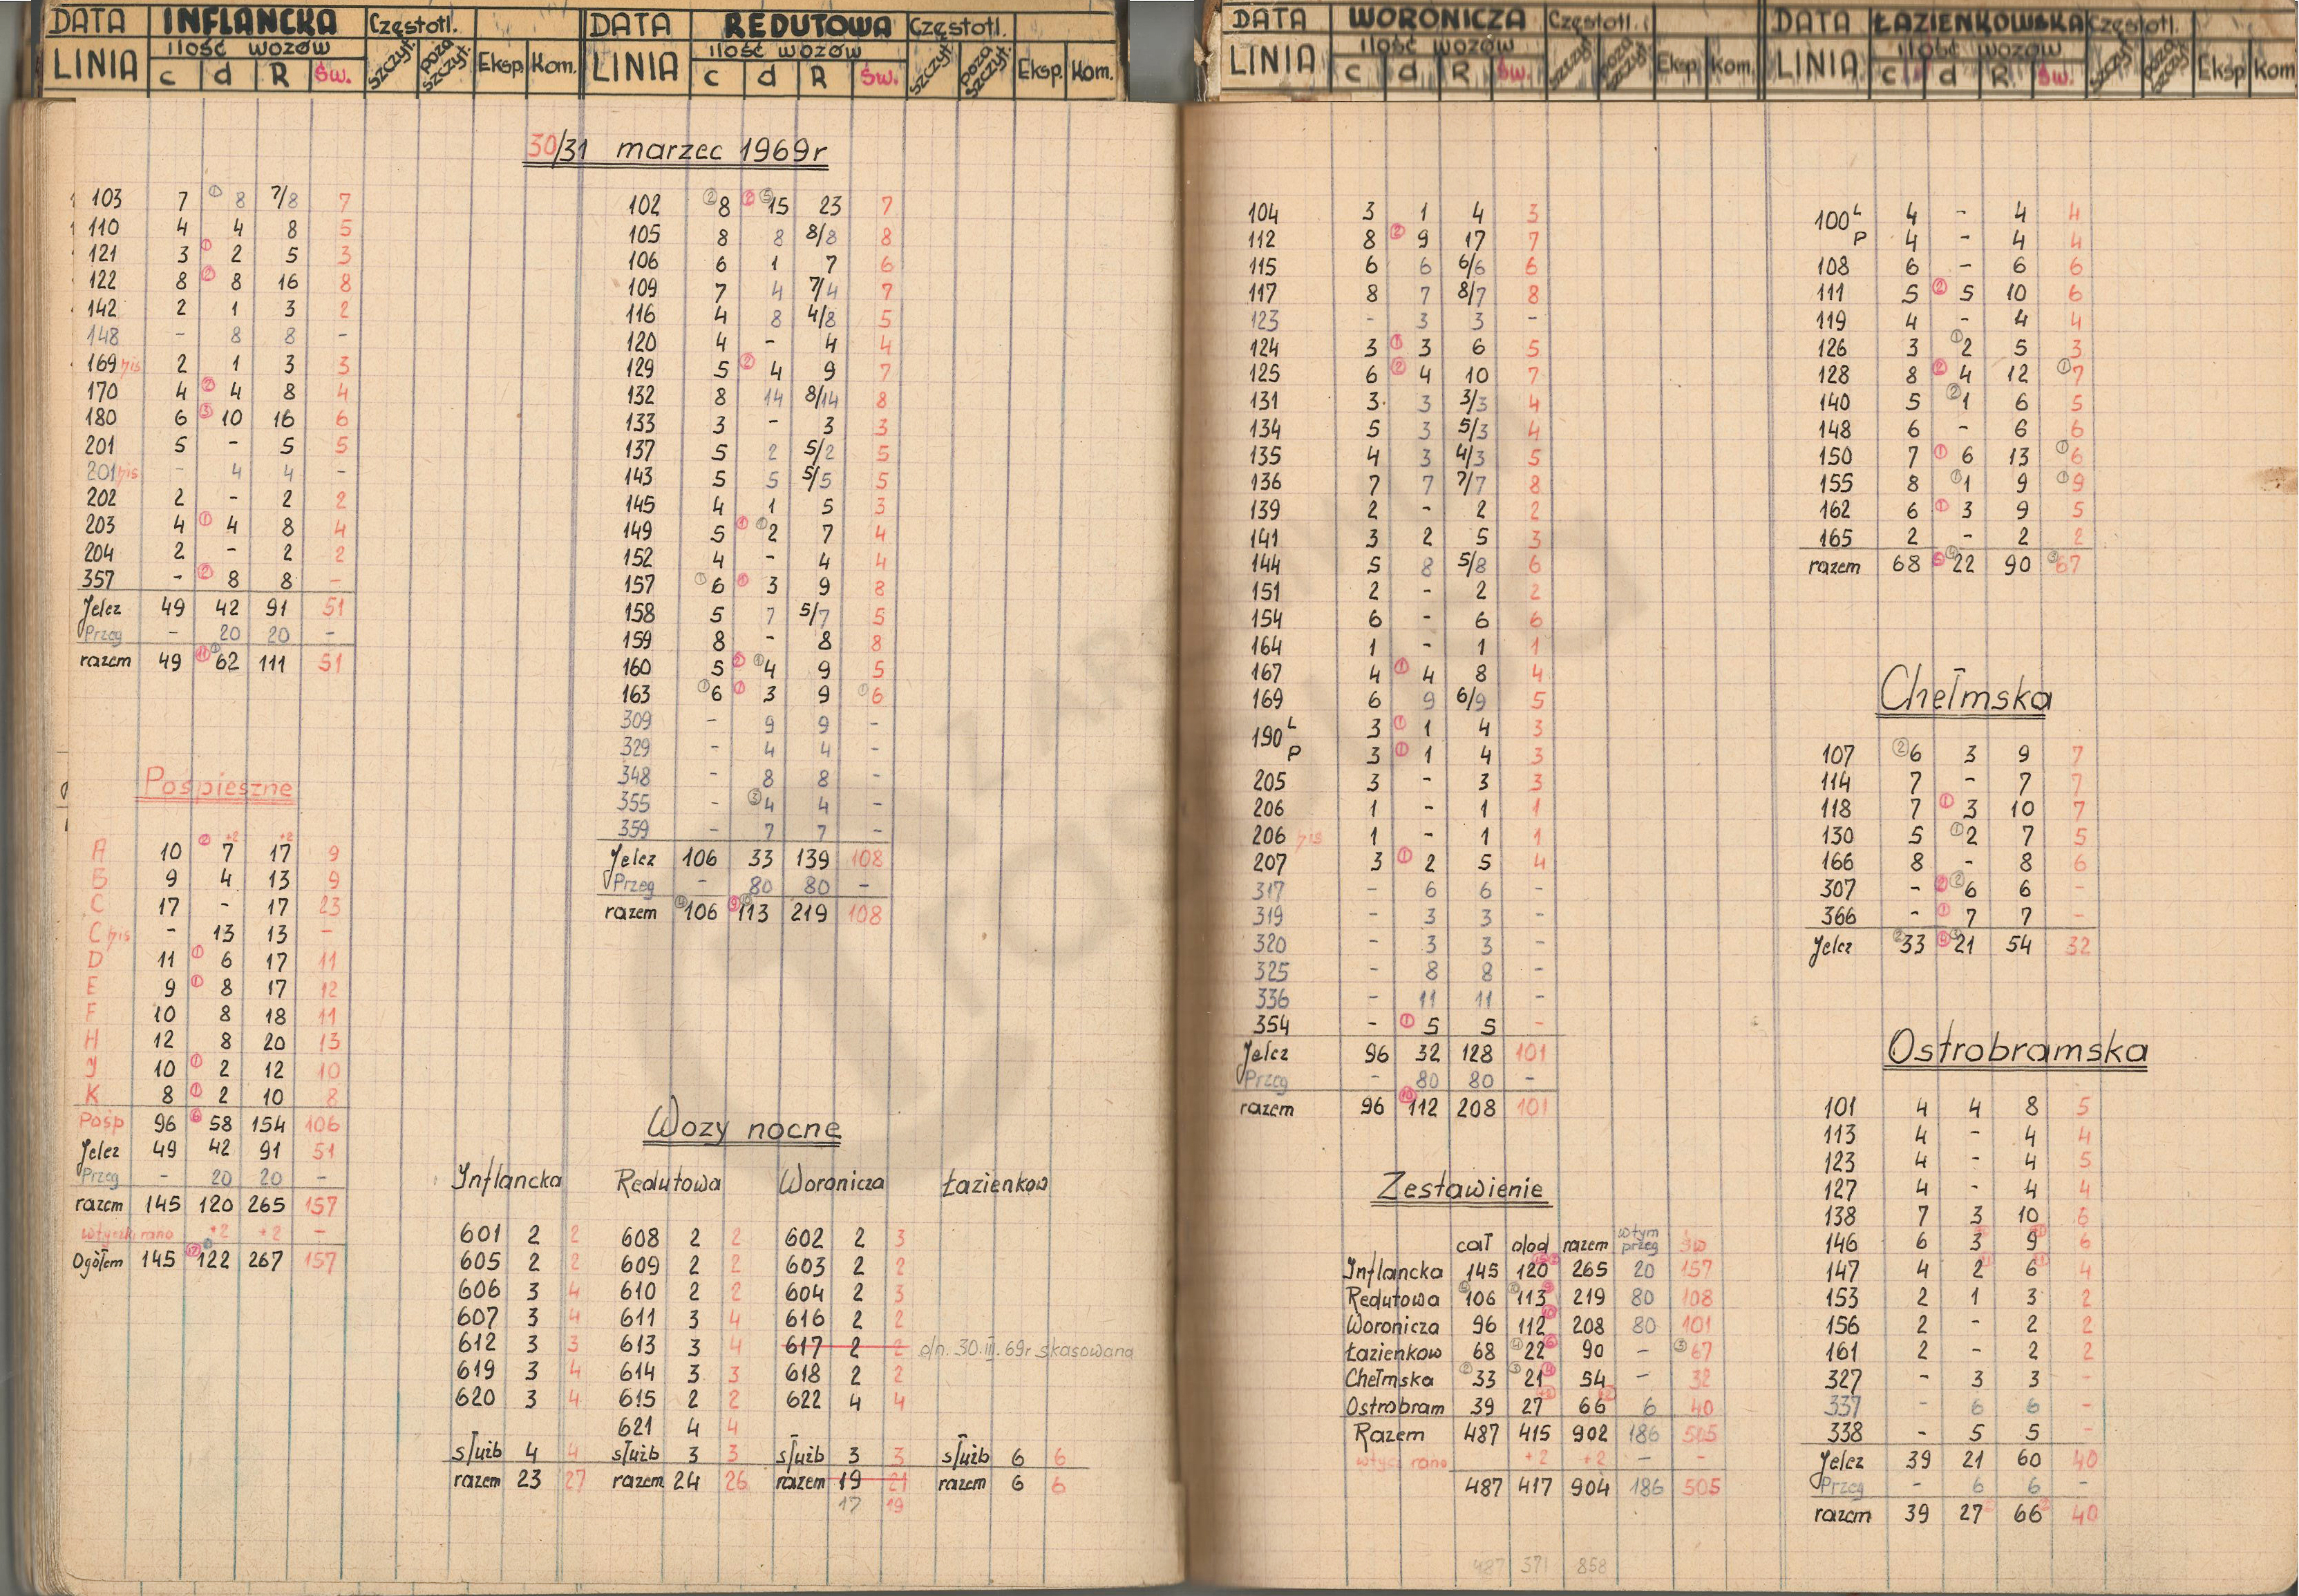 DATA INFLANCKA Częstotl.
ilość wozów
LINIA c d R Św. szczyt. poza szczyt. Eksp. Kom.
DATA REDUTOWA Częstotl.
ilość wozów
LINIA c d R Św. szczyt. poza szczyt. Eksp. Kom.
DATA WORONICZA Częstotl.
ilość wozów
LINIA c d R Św. szczyt. poza szczyt. Eksp. Kom.
DATA ŁAZIENKOWSKA Częstotl.
ilość wozów
LINIA c d R Św. szczyt. poza szczyt. Eksp Kom
30/31 marzec 1969r
103 7 ① 8 7/8 7
110 4 4 8 5
121 3 ① 2 5 3
122 8 ② 8 16 8
142 2 1 3 2
148 - 8 8 -
169 bis 2 1 3 3
170 4 ② 4 8 4
180 6 ③ 10 16 6
201 5 - 5 5
201 bis - 4 4 -
202 2 - 2 2
203 4 ① 4 8 4
204 2 - 2 2
357 - ② 8 8 -
Jelcz 49 42 91 51
Przeg - 20 20 -
razem 49 ⑪ ① 62 111 51
Pośpieszne
A 10 ② 7 +2 17 +2 9
B 9 4 13 9
C 17 - 17 23
C bis - 13 13 -
D 11 ① 6 17 11
E 9 ① 8 17 12
F 10 8 18 11
H 12 8 20 13
J 10 ① 2 12 10
K 8 ① 2 10 8
Pośp 96 ⑥ 58 154 106
Jelcz 49 42 91 51
Przeg - 20 20 -
razem 145 120 265 157
wtyczk. rano +2 +2 -
Ogółem 145 ⑰ 122 267 157
102 ② 8 ② ⑤ 15 23 7
105 8 8 8/8 8
106 6 1 7 6
109 7 4 7/4 7
116 4 8 4/8 5
120 4 - 4 4
129 5 ② 4 9 7
132 8 14 8/14 8
133 3 - 3 3
137 5 2 5/2 5
143 5 5 5/5 5
145 4 1 5 3
149 5 ① ① 2 7 4
152 4 - 4 4
157 ① 6 ① 3 9 8
158 5 7 5/7 5
159 8 - 8 8
160 5 ② ① 4 9 5
163 ① 6 ① 3 9 ① 6
309 - 9 9 -
329 - 4 4 -
348 - 8 8 -
355 - ③ 4 4 -
359 - 7 7 -
Jelcz 106 33 139 108
Przeg - 80 80 -
razem ④ 106 ⑨ ⑩ 113 219 108
Wozy nocne
Inflancka Redutowa Woronicza Łazienkow
601 2 2 608 2 2 602 2 3
605 2 2 609 2 2 603 2 2
606 3 4 610 2 2 604 2 3
607 3 4 611 3 4 616 2 2
612 3 3 613 3 4 617 2 2 dn. 30.III.69r skasowana
619 3 4 614 3 3 618 2 2
620 3 4 615 2 2 622 4 4
621 4 4
służb 4 4 służb 3 3 służb 3 3 służb 6 6
razem 23 27 razem 24 26 razem 19 21 razem 6 6
17 19
104 3 1 4 3
112 8 ② 9 17 7
115 6 6 6/6 6
117 8 7 8/7 8
123 - 3 3 -
124 3 ① 3 6 5
125 6 ② 4 10 7
131 3 3 3/3 4
134 5 3 5/3 4
135 4 3 4/3 5
136 7 7 7/7 8
139 2 - 2 2
141 3 2 5 3
144 5 8 5/8 6
151 2 - 2 2
154 6 - 6 6
164 1 - 1 1
167 4 ① 4 8 4
169 6 9 6/9 5
190 L 3 ① 1 4 3
P 3 ① 1 4 3
205 3 - 3 3
206 1 - 1 1
206 bis 1 - 1 1
207 3 ① 2 5 4
317 - 6 6 -
319 - 3 3 -
320 - 3 3 -
325 - 8 8 -
336 - 11 11 -
354 - ① 5 5 -
Jelcz 96 32 128 101
Przeg - 80 80 -
razem 96 ⑩ 112 208 101
Zestawienie
cał dod razem wtym przeg św
Inflancka 145 120 265 20 157
Redutowa ④ 106 113 219 80 108
Woronicza 96 112 ⑩ 208 80 101
Łazienkow 68 ④ 22 ⑥ 90 - ③ 67
Chełmska ② 33 ③ 21 ④ 54 - 32
Ostrobram 39 27 +2 66 +2 6 40
Razem 487 415 902 186 505
wtycz rano +2 +2 - -
487 417 904 186 505
487 371 858
100 L 4 - 4 4
P 4 - 4 4
108 6 - 6 6
111 5 ② 5 10 6
119 4 - 4 4
126 3 ① 2 5 3
128 8 ② 4 12 ① 7
140 5 ② 1 6 5
148 6 - 6 6
150 7 ① 6 13 ① 6
155 8 ① 1 9 ① 9
162 6 ① 3 9 5
165 2 - 2 2
razem 68 ⑥ ④ 22 90 ③ 67
Chełmska
107 ② 6 3 9 7
114 7 - 7 7
118 7 ① 3 10 7
130 5 ① 2 7 5
166 8 - 8 6
307 - ② ② 6 6 -
366 - ① 7 7 -
Jelcz ② 33 ④ ③ 21 54 32
Ostrobramska
101 4 4 8 5
113 4 - 4 4
123 4 - 4 5
127 4 - 4 4
138 7 3 10 6
146 6 3 9 6
147 4 2 6 4
153 2 1 3 2
156 2 - 2 2
161 2 - 2 2
327 - 3 3 -
337 - 6 6 -
338 - 5 5 -
Jelcz 39 21 60 40
Przeg - 6 6 -
razem 39 27 66 40